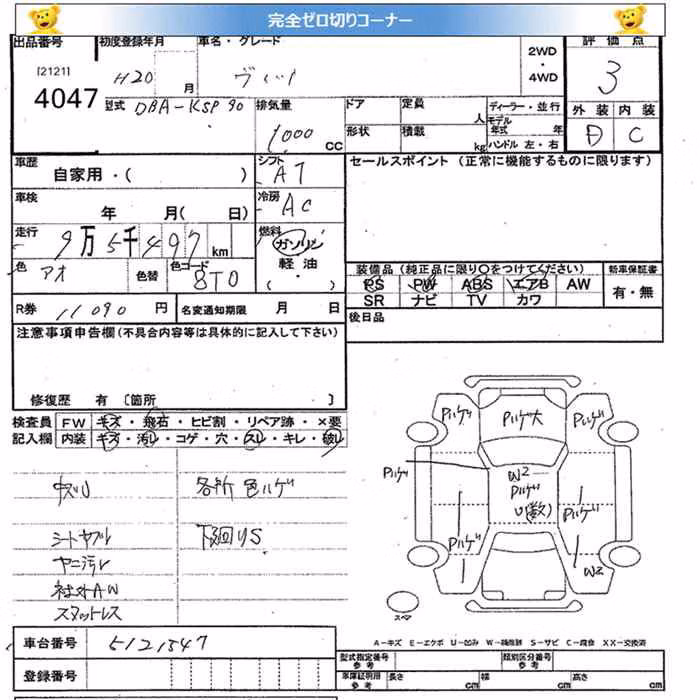 完全ゼロ切りコーナー
出品番号 初度登録年月 車名・グレード 2WD・4WD 評価点
[2121]
4047
H20 月 ヴィッツ 3
型式 DBA-KSP90 排気量 1,000 CC
ドア 定員 人 ディーラー・並行
形状 積載 kg モデル年式 年
ハンドル 左・右
外装 内装
D C
車歴 自家用・( ) シフト AT
セールスポイント (正常に機能するものに限ります)
車検 年 月( 日) 冷房 AC
走行 9万5千497km 燃料 ガソリン 軽油 (・)
色 アオ 色替 色コード 8T0
装備品 (純正品に限り○をつけてください) 新車保証書
PS PW ABS エアB AW 有・無
SR ナビ TV カワ
R券 11090円 名変通知期限 月 日
後日品
注意事項申告欄 (不具合内容等は具体的に記入して下さい)
修復歴 有 〔箇所 〕
検査員 FW キズ・飛石・ヒビ割・リペア跡・×要
記入欄 内装 キズ・汚レ・コゲ・穴・スレ・キレ・破レ
各所 色ハゲ
シートヤブレ 下廻りS
ヤニ汚レ
社外AW
スタットレス
Pハゲ Pハゲ大 Pハゲ
Pハゲ
W2
Pハゲ
U(数)
Pハゲ Pハゲ
W2
スペア
A-キズ E-エクボ U-凹み W-補修跡 S-サビ C-腐食 XX-交換済
車台番号 5121547
型式指定番号 参考 類別区分番号 参考
登録番号
車庫証明用 参考 長さ cm 幅 cm 高さ cm